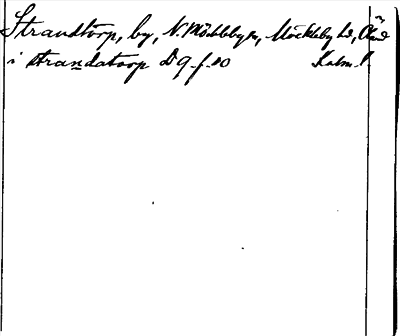 Strandtorp, by, N. Möckleby sn, Möckleby hd, Öland
i strandatorp D 9 f. 20 Kalm. l.